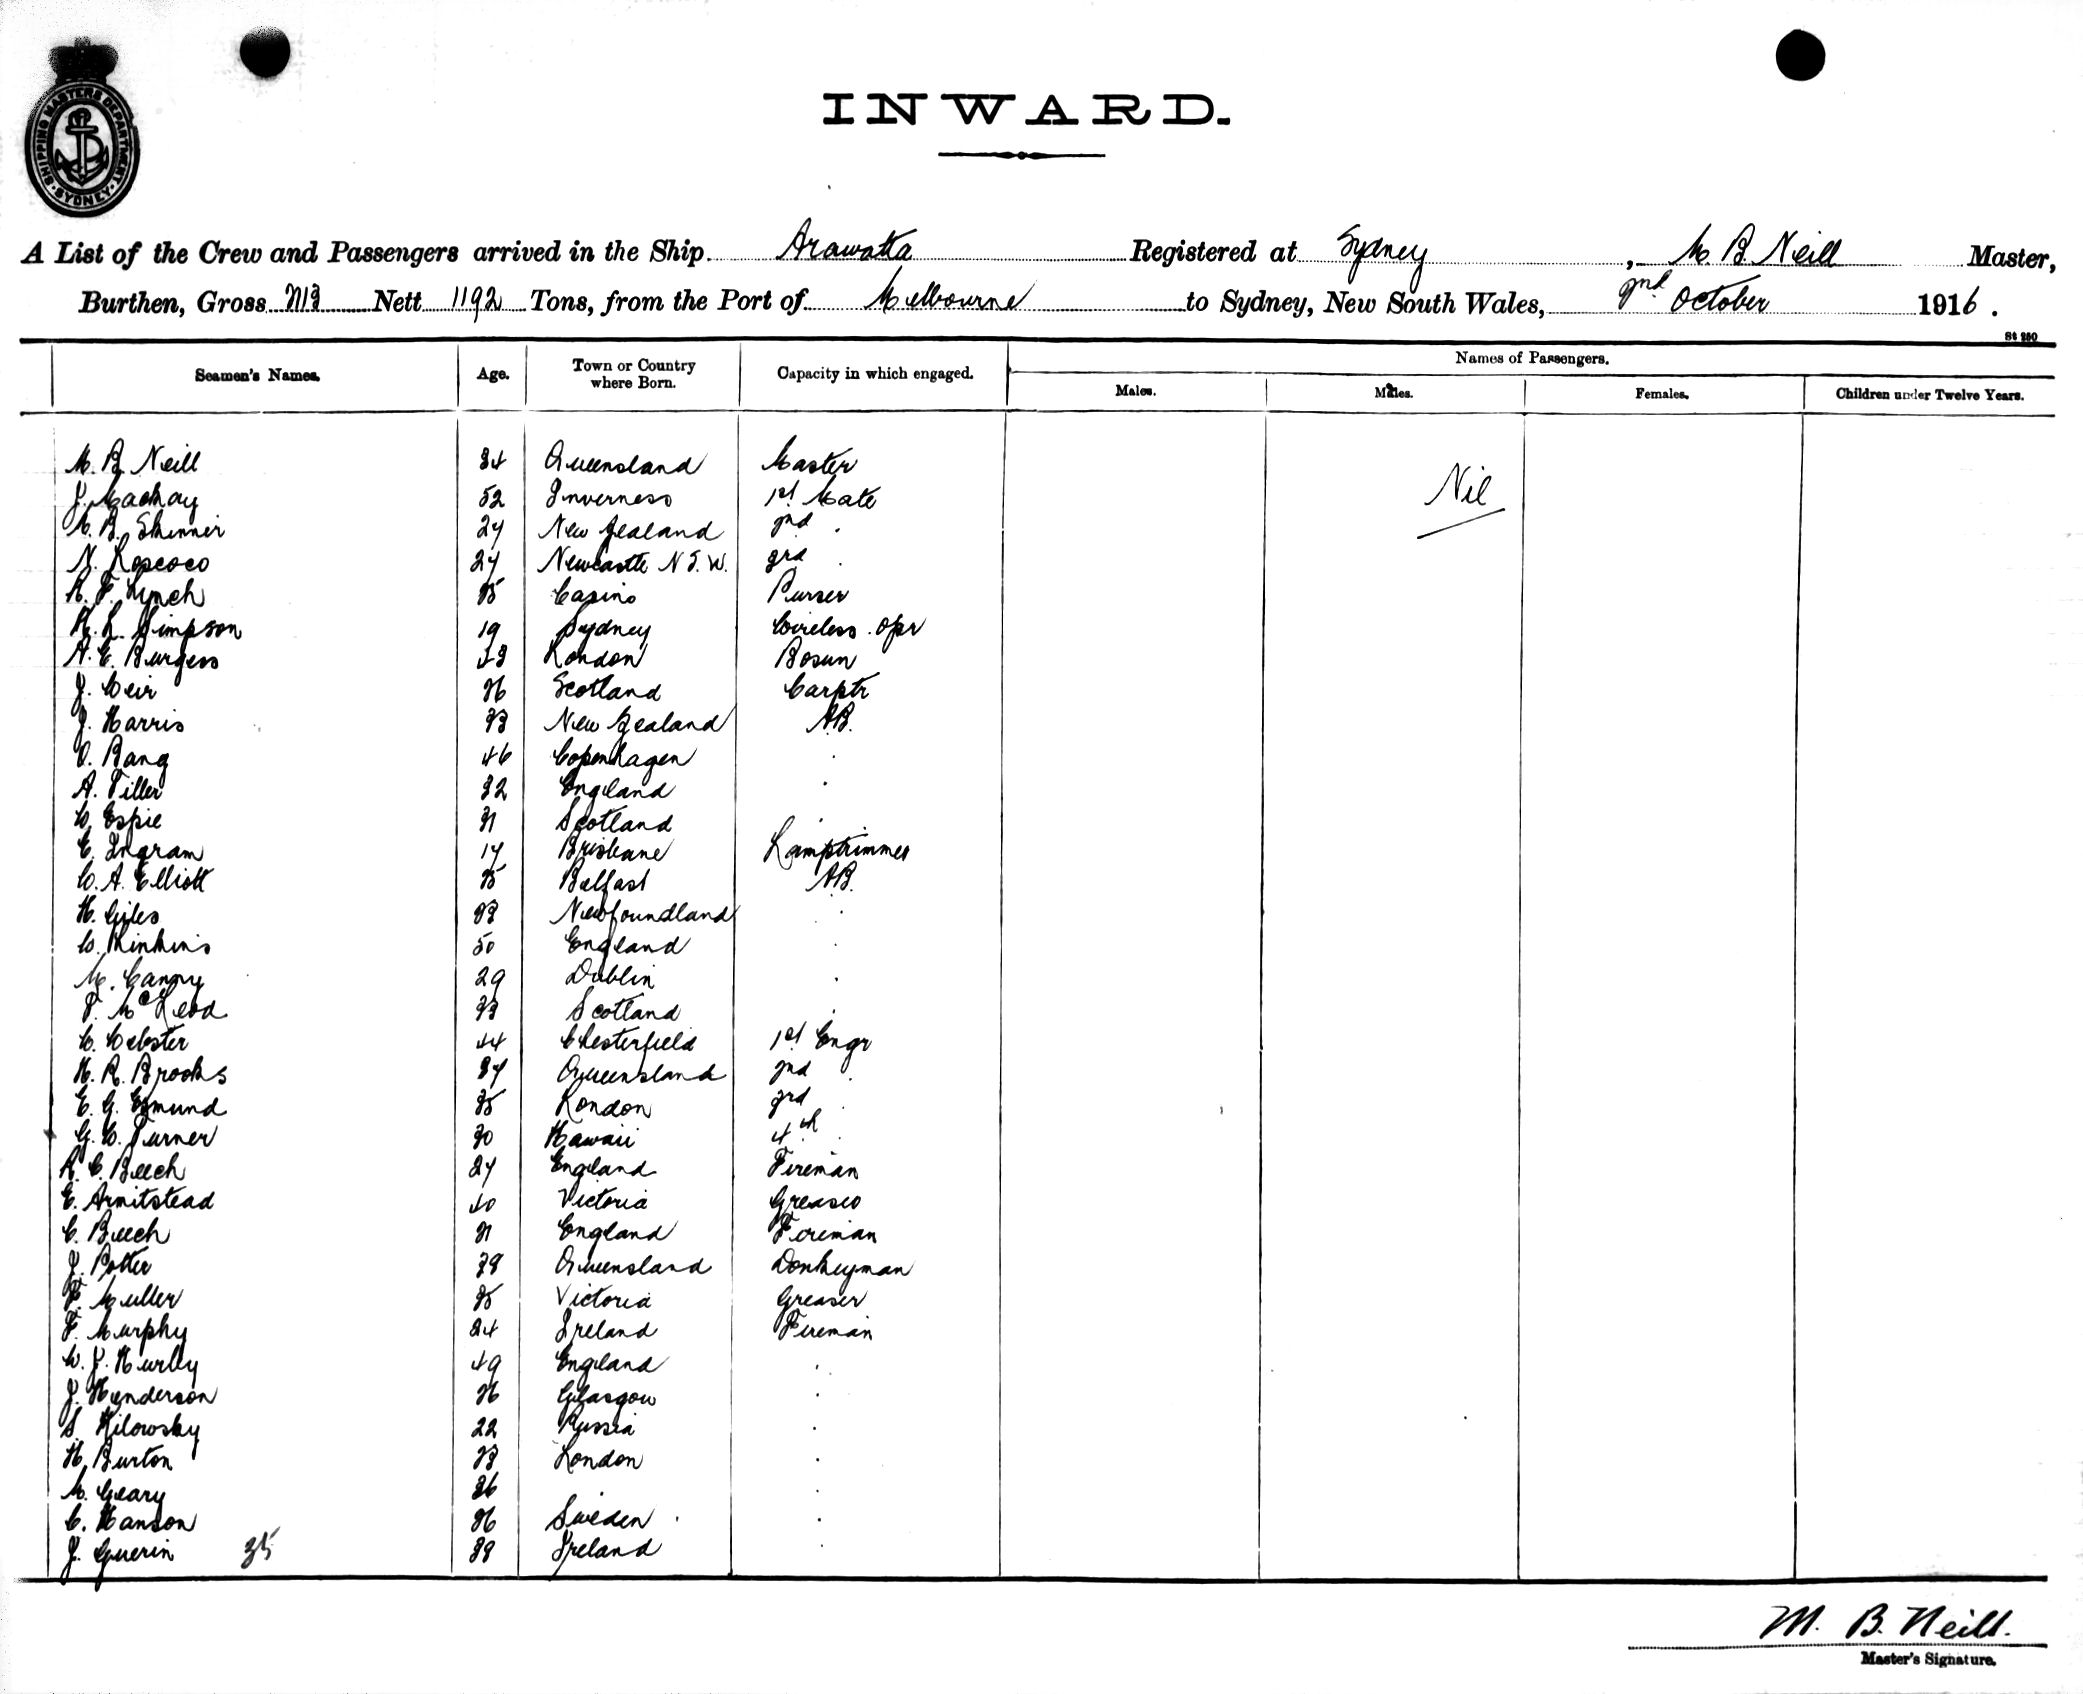 SHIPPING MASTERS DEPARTMENT · SYDNEY ·
INWARD.
A List of the Crew and Passengers arrived in the Ship Arawatta Registered at Sydney, M. B. Neill Master,
Burthen, Gross Nett 1192 Tons, from the Port of Melbourne to Sydney, New South Wales, 2nd October 1916.
St 250
Seamen's Names. Age. Town or Country where Born. Capacity in which engaged. Names of Passengers.
Males. Males. Females. Children under Twelve Years.
M. B. Neill 34 Queensland Master
Nil
J. Mackay 52 Inverness 1st Mate
M. B. Skinner 27 New Zealand 2nd "
N. Roscoe 27 Newcastle N.S.W. 3rd "
R. F. Lynch Casino Purser
R. L. Simpson 19 Sydney Wireless Opr
A. E. Burgess 43 London Bosun
J. Weir Scotland Carptr
J. Harris 33 New Zealand A.B.
O. Bang 46 Copenhagen "
A. Tiller 32 England "
W. Espie Scotland "
E. Ingram 17 Brisbane Lamptrimmer
W. A. Elliott Belfast A.B.
H. Giles 33 Newfoundland "
W. 50 England "
M. Canny 29 Dublin "
T. McLeod 33 Scotland "
C. Webster 44 Chesterfield 1st Engr
H. R. Brooks 37 Queensland 2nd "
E. G. Esmund 35 London 3rd "
G. W. Turner 30 Hawaii 4th "
R. C. Beech 27 England Fireman
E. Armitstead 40 Victoria Greaser
C. Beech England Fireman
J. Potter 38 Queensland Donkeyman
F. Muller 35 Victoria Greaser
F. Murphy 24 Ireland Fireman
W. J. Hurley 49 England "
J. Henderson Glasgow "
S. Kilowsky 22 Russia "
H. Burton London "
M. Geary 36 "
C. Hanson Sweden "
J. Guerin 35 38 Ireland "
M. B. Neill.
Master's Signature.